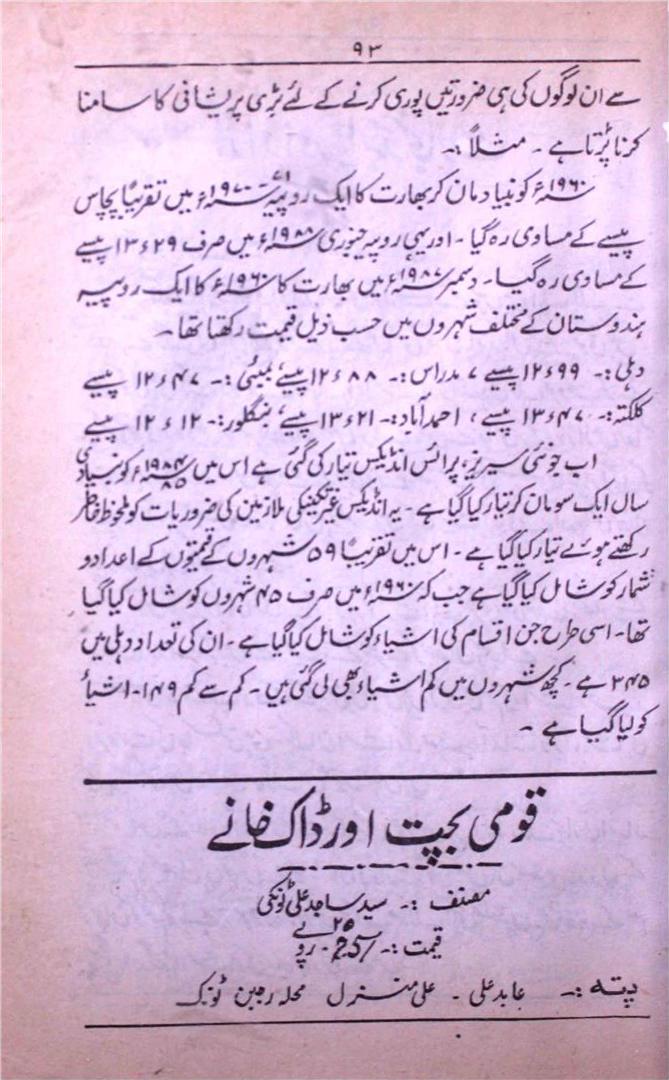 ۹۳
سے ان لوگوں کی ہی ضرورتیں پوری کرنے کے لئے بڑی پریشانی کا سامنا
کرنا پڑتا ہے ۔ مثلاً :۔
۱۹۶۰ء کو بنیاد مان کر بھارت کا ایک روپیہ ۷۱-۱۹۷۰ء میں تقریباً پچاس
پیسے کے مساوی رہ گیا ۔ اور یہی روپیہ جنوری ۱۹۸۸ء میں صرف ۲۹ء۱۳ پیسے
کے مساوی رہ گیا ۔ دسمبر ۱۹۸۷ء میں بھارت کا ۱۹۶۰ء کا ایک روپیہ
ہندوستان کے مختلف شہروں میں حسب ذیل قیمت رکھتا تھا ۔
دہلی :۔ ۹۹ء۱۲ پیسے ، مدراس :۔ ۸۸ء۱۲ پیسے ، بمبئی :۔ ۴۷ء۱۲ پیسے
کلکتہ :۔ ۴۷ء۱۳ پیسے ، احمد آباد :۔ ۲۱ء۱۳ پیسے ، بنگلور :۔ ۱۲ء۱۲ پیسے
اب جو نئی سیریز ، پرائس انڈیکس تیار کی گئی ہے اس میں ۸۵-۱۹۸۴ء کو بنیادی
سال ایک سو مان کر تیار کیا گیا ہے ۔ یہ انڈیکس غیر تکنیکی ملازمین کی ضروریات کو ملحوظ خاطر
رکھتے ہوئے تیار کیا گیا ہے ۔ اس میں تقریباً ۵۹ شہروں کے قیمتوں کے اعداد و
شمار کو شامل کیا گیا ہے جب کہ ۱۹۶۰ء میں صرف ۴۵ شہروں کو شامل کیا گیا
تھا ۔ اسی طرح جن اقسام کی اشیاء کو شامل کیا گیا ہے ۔ ان کی تعداد دہلی میں
۳۴۵ ہے ۔ کچھ شہروں میں کم اشیاء بھی لی گئی ہیں ۔ کم سے کم ۱۴۹ ۔ اشیاء
کو لیا گیا ہے ۔
قومی بچت اور ڈاک خانے
مصنف :۔ سید ساجد علی ٹونکی
قیمت :۔ ۲۵ روپے
پتہ :۔ عابد علی ۔ علی منزل محلہ ٹونک